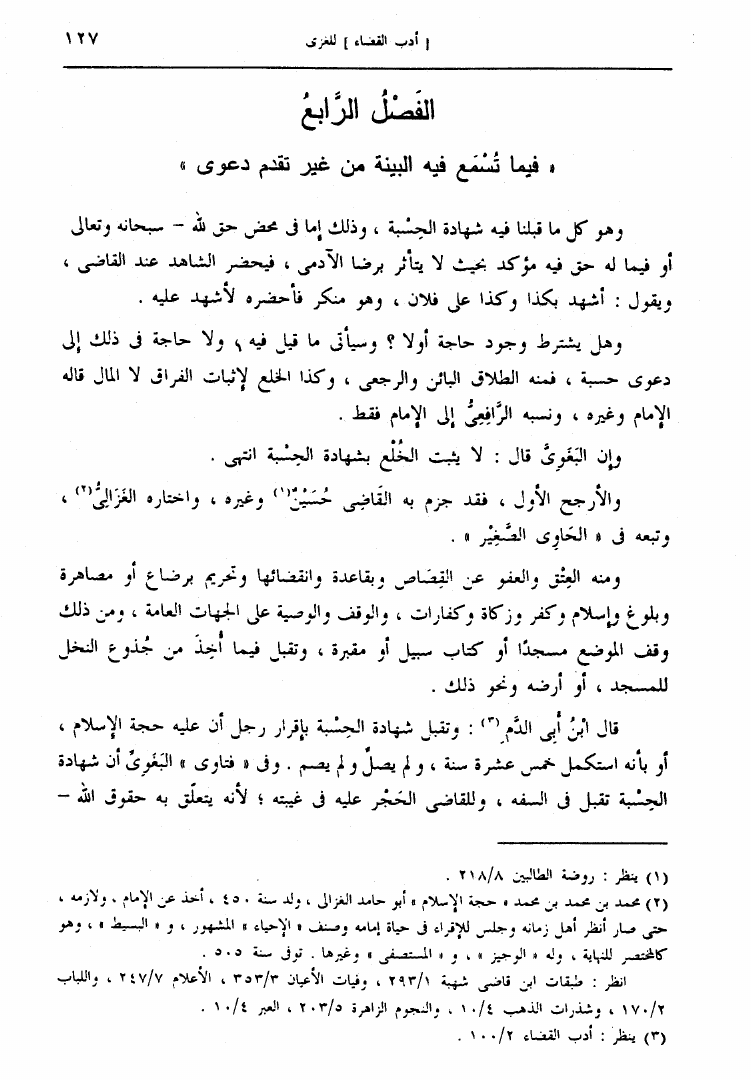 [ أدب القضاء ] للغزى ١٢٧
الفَصْلُ الرَّابعُ
« فيما تُسْمَع فيه البينة من غير تقدم دعوى »
وهو كل ما قبلنا فيه شهادة الحِسْبة ، وذلك إما فى محض حق لله – سبحانه وتعالى
أو فيما له حق فيه مؤكد بحيث لا يتأثر برضا الآدمى ، فيحضر الشاهد عند القاضى ،
ويقول : أشهد بكذا وكذا على فلان ، وهو منكر فأحضره لأشهد عليه .
وهل يشترط وجود حاجة أولا ؟ وسيأتى ما قيل فيه ، ولا حاجة فى ذلك إلى
دعوى حسبة ، فمنه الطلاق البائن والرجعى ، وكذا الخلع لإثبات الفراق لا المال قاله
الإمام وغيره ، ونسبه الرَّافِعِىُّ إلى الإمام فقط .
وإن البَغَوِىَّ قال : لا يثبت الخُلْع بشهادة الحِسْبة انتهى .
والأرجح الأول ، فقد جزم به القَاضِى حُسَيْنٌ(١) وغيره ، واختاره الغَزَالِىُّ(٢) ،
وتبعه فى « الحَاوِى الصَّغِيْر » .
ومنه العِتْق والعفو عن القِصَاص وبقاعدة وانقضائها وتحريم برضاع أو مصاهرة
وبلوغ وإسلام وكفر وزكاة وكفارات ، والوقف والوصية على الجهات العامة ، ومن ذلك
وقف الموضع مسجدًا أو كتاب سبيل أو مقبرة ، وتقبل فيما أُخِذَ من جُذوع النخل
للمسجد ، أو أرضه ونحو ذلك .
قال ابْنُ أَبِى الدَّمِ(٣) : وتقبل شهادة الحِسْبة بإقرار رجل أن عليه حجة الإسلام ،
أو بأنه استكمل خمس عشرة سنة ، ولم يصلِّ ولم يصم . وفى « فتاوى » البَغَوِىِّ أن شهادة
الحِسْبة تقبل فى السفه ، وللقاضى الحَجْر عليه فى غيبته ؛ لأنه يتعلّق به حقوق الله –
(١) ينظر : روضة الطالبين ٢١٨/٨ .
(٢) محمد بن محمد بن محمد « حجة الإسلام » أبو حامد الغزالى ، ولد سنة ٤٥٠ ، أخذ عن الإمام ، ولازمه ،
حتى صار أنظر أهل زمانه وجلس للإقراء فى حياة إمامه وصنف « الإحياء » المشهور ، و « البسيط » ، وهو
كالمختصر للنهاية ، وله « الوجيز » ، و « المستصفى » وغيرها . توفى سنة ٥٠٥ .
انظر : طبقات ابن قاضى شهبة ٢٩٣/١ ، وفيات الأعيان ٣٥٣/٣ ، الأعلام ٢٤٧/٧ ، واللباب
١٧٠/٢ ، وشذرات الذهب ١٠/٤ ، والنجوم الزاهرة ٢٠٣/٥ ، العبر ١٠/٤ .
(٣) ينظر : أدب القضاء ١٠٠/٢ .